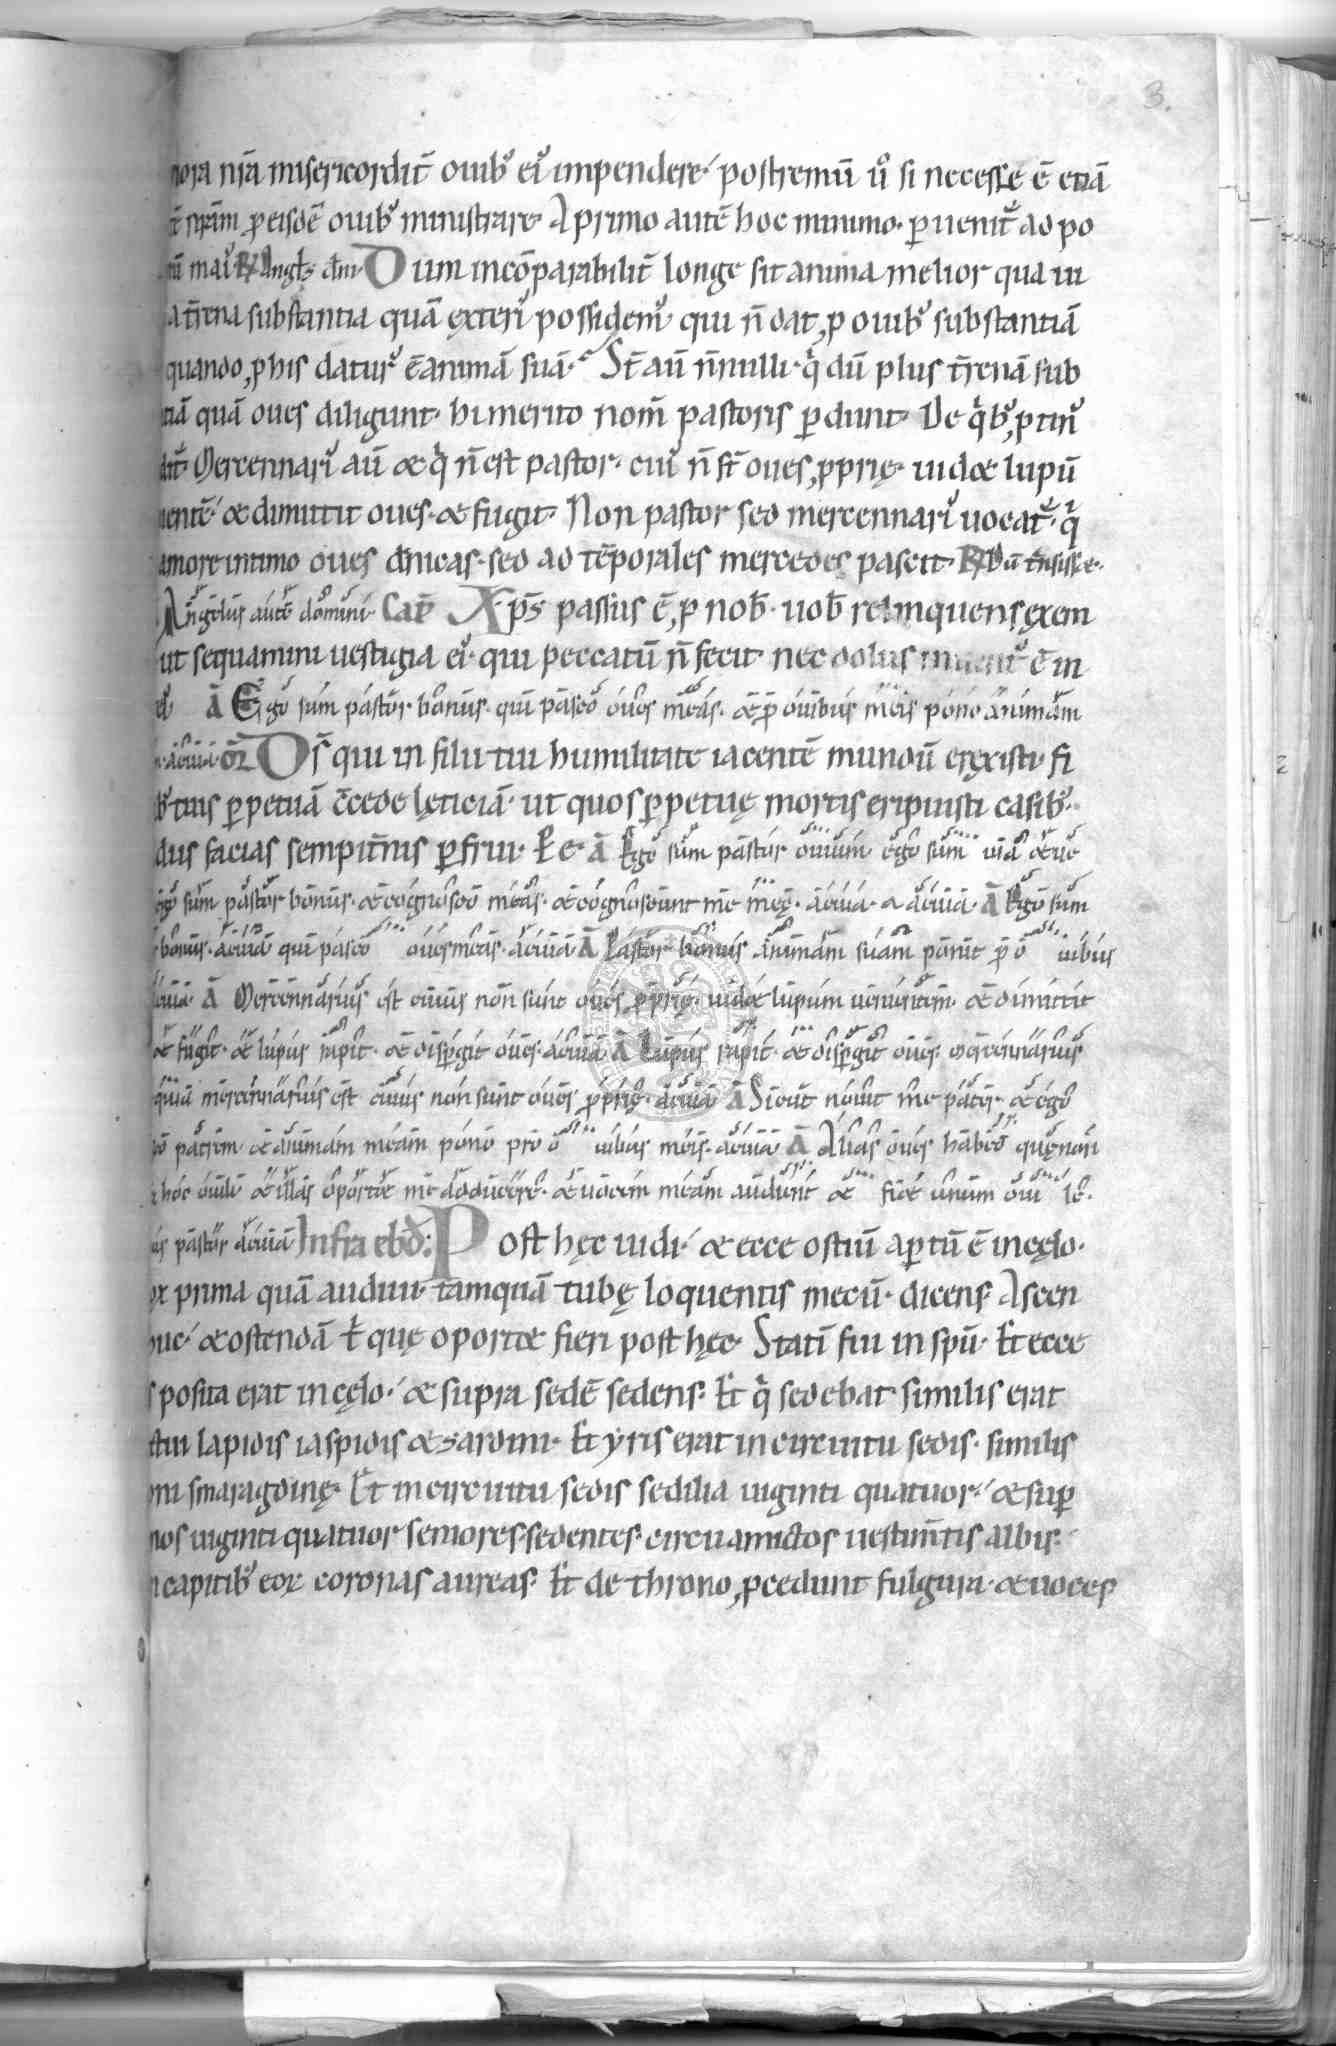 3.
nr̄a misericordit̄ ouib᾿ ei᾿ impendere postremū u᾿ si necesse ē etiā
ꝓ eisdē ouib᾿ ministrare A primo autē hoc minimo ꝑuenit᾿ ad po
mai᾿ Ang̅ls dn̄i Dum incōparabilit̄ longe sit anima melior qua ui
substantia quā exteri᾿ possidem᾿ qui n̄ dat ꝓ ouib᾿ substantiā
quando ꝓ his datur᾿ ē animā suā St̄ aū n̄nulli q̇ dū plus t̄renā sub
quā oues diligunt hi merito nom̄ pastoris ꝑdunt De q̇b᾿ ꝓtin᾿
Mercennari᾿ aū & q̇ n̄ est pastor cui᾿ n̄ st̄ oues ꝓprię uid& lupū
& dimittit oues & fugit Non pastor sed mercennari᾿ uocat᾿ q̇
amore intimo oues dn̄icas sed ad tēporales mercedes pascit R Dū t̄nsisse
Angelus autē domini Cap̄ Xp̄s passus ē ꝓ nob̄ uob̄ relinquens exem
ut sequamini uestigia ei᾿ qui peccatū n̄ fecit nec dolus inuent᾿ ē in
ā Ego sum pastor bonus qui pasco oues meas & pro ouibus meis pono animam
aeuia or̄ Ds̄ qui in filii tui humilitate iacentē mundū erexisti fi
tuis ꝑpetuā c̄cede lęticiā ut quos ꝑpetuę mortis eripuisti casib᾿
facias sempit̄nis ꝑfrui ā Ego sum pastor ouium ego sum uia & ue
ego sum pastor bonus & cognosco meas & cognoscunt me meę aeuia aeuia ā Ego sum
bonus aeuia qui pasco oues meas aeuia ā Pastor bonus animam suam ponit pro o uibus
aeuia ā Mercennarius est cuius non sunt oues ꝓprię uid& lupum uenientem & dimittit
& fugit & lupus rapit & disꝑgit oues aeuia ā Lupus rapit & disꝑgit oues mercennarius
quia mercennarius est cuius non sunt oues ꝓprię aeuia ā Sicut nouit me pater & ego
patrem & animam meam pono pro o uibus meis aeuia ā Alias oues habeo quę non
hoc ouili & illas oport& me adducere & uocem meam audient & fi& unum oui le
pastor aeuia Infra ebd̄ Post hęc uidi & ecce ostiū aꝑtū ē in cęlo
prima quā audiui tamquā tubę loquentis mecū dicens Ascen
& ostendā t̄ quę oport& fieri post hęc Statī fui in spū Et ecce
posita erat in cęlo & supra sedē sedens Et q̇ sedebat similis erat
lapidis iaspidis & sardini Et yris erat in circuitu sedis similis
smaragdinę Et in circuitu sedis sedilia uiginti quatuor & suꝑ
uiginti quatuor seniores sedentes circuamictos uestim̄tis albis
capitib᾿ eoꝝ coronas aureas Et de throno ꝓcedunt fulgura & uoces